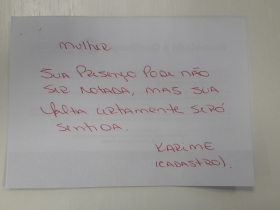 mulher
SUA PRESENÇA PODE NÃO
SER NOTADA, MAS SUA
FALTA CERTAMENTE SERÁ
SENTIDA.
KARIME
(CADASTRO).